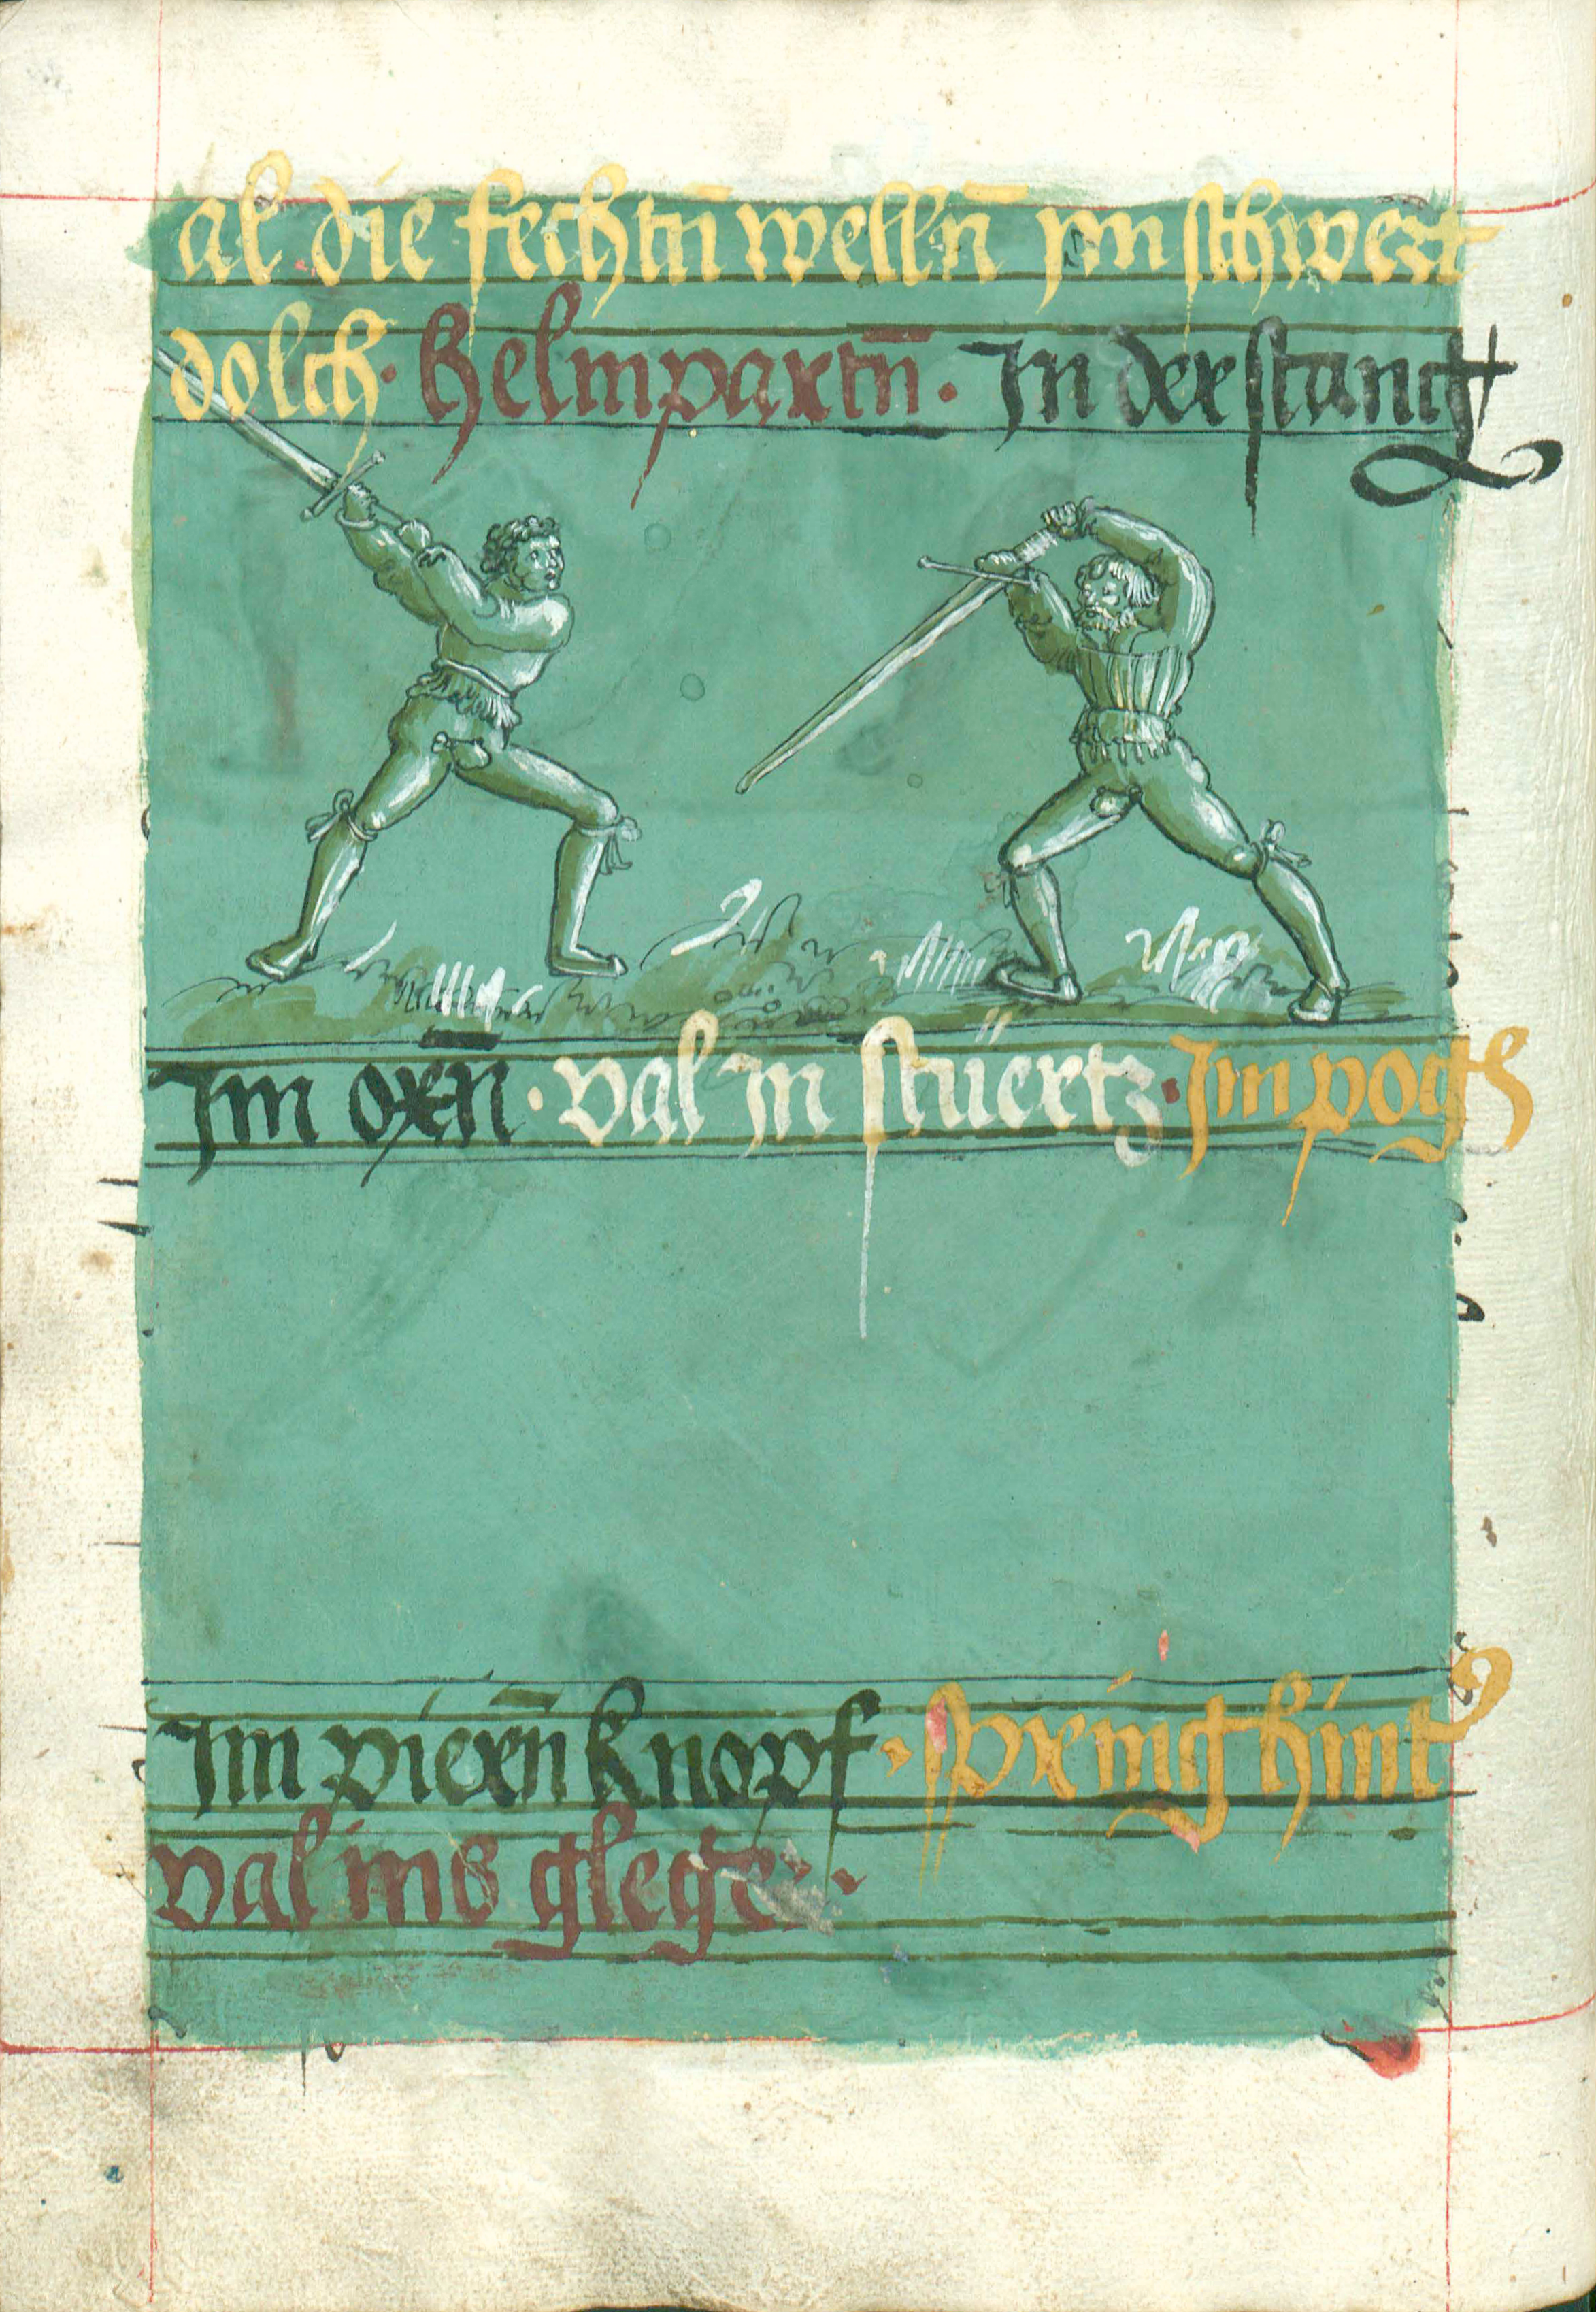 al die fechtn̄ welln̄ ym schwert
dolch · helmpartn̄ · In der stang
Im oxn̄ · val in stüertz · Im pogn
Im piern̄ knopf · spring hint
val ins gleger ·